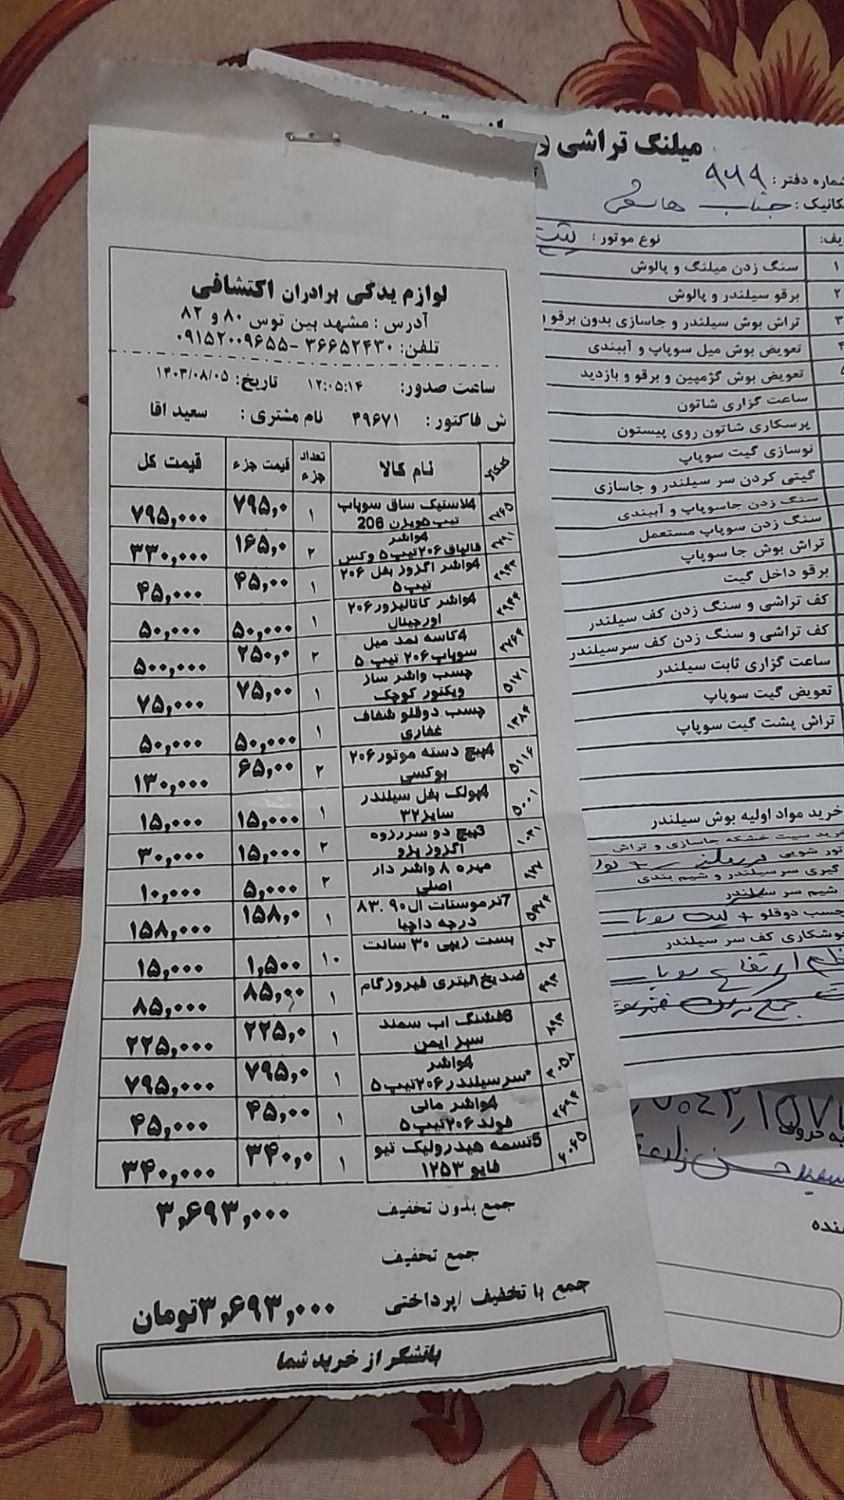 لوازم یدکی برادران اکتشافی
آدرس : مشهد بین توس ۸۰ و ۸۲
تلفن: ۳۶۶۵۲۴۳۰ -۰۹۱۵۲۰۰۹۶۵۵
ساعت صدور: ۱۲:۰۵:۱۴ تاریخ: ۱۴۰۳/۰۸/۰۵
ش فاکتور : ۴۹۶۷۱ نام مشتری : سعید اقا
نام کالا تعداد جزء قیمت جزء قیمت کل
۲۷۶۵ 4لاستیک ساق سوپاپ ۱ ۷۹۵,۰ ۷۹۵,۰۰۰
206
۲۷۹۱ 4واشر ۲ ۱۶۵,۰ ۳۳۰,۰۰۰
قالپاق ۲۰۶تیپ ۵ وکس
۲۹۴۳ 4واشر اگزوز بغل ۲۰۶ ۱ ۴۵,۰۰ ۴۵,۰۰۰
تیپ ۵
۲۹۴۴ 4واشر کاتالیزور ۲۰۶ ۱ ۵۰,۰۰۰ ۵۰,۰۰۰
اورجینال
۲۷۶۴ 4کاسه نمد میل ۲ ۲۵۰,۰ ۵۰۰,۰۰۰
سوپاپ ۲۰۶ تیپ ۵
۵۱۷۱ چسب واشر ساز ۱ ۷۵,۰۰ ۷۵,۰۰۰
ویکتور کوچک
۱۳۸۴ چسب دوقلو شفاف ۱ ۵۰,۰۰۰ ۵۰,۰۰۰
غفاری
۵۱۱۶ 4پیچ دسته موتور ۲۰۶ ۲ ۶۵,۰۰ ۱۳۰,۰۰۰
بوکسی
۵۰۰۱ 4پولک بغل سیلندر ۱ ۱۵,۰۰۰ ۱۵,۰۰۰
سایز۳۲
۱۰۳۱ 3پیچ دو سررزوه ۲ ۱۵,۰۰۰ ۳۰,۰۰۰
اگزوز پژو
مهره ۸ واشر دار ۲ ۵,۰۰۰ ۱۰,۰۰۰
اصلی
۵۴۷۴ 7ترموستات ال۹۰ .۸۳ ۱ ۱۵۸,۰ ۱۵۸,۰۰۰
درجه داچیا
بست زیپی ۳۰ سانت ۱۰ ۱,۵۰۰ ۱۵,۰۰۰
ضدیخ الیتری فیروزگام ۱ ۸۵,۰۰ ۸۵,۰۰۰
۸۹۳ 6فشنگ اب سمند ۱ ۲۲۵,۰ ۲۲۵,۰۰۰
سبز ایمن
۳۰۵۸ 4واشر ۱ ۷۹۵,۰ ۷۹۵,۰۰۰
*سرسیلندر ۲۰۶تیپ ۵
۲۶۹۴ 4واشر مانی ۱ ۴۵,۰۰ ۴۵,۰۰۰
فولد ۲۰۶تیپ ۵
۶۰۶۵ 5تسمه هیدرولیک تیو ۱ ۳۴۰,۰ ۳۴۰,۰۰۰
فایو ۱۲۵۳
جمع بدون تخفیف ۳,۶۹۳,۰۰۰
جمع تخفیف
جمع با تخفیف /پرداختی ۳,۶۹۳,۰۰۰تومان
باتشکر از خرید شما
میلنگ تراشی و
شماره دفتر : ۹۶۹
کانیک : جناب هاشمی
یف: نوع موتور :
۱ سنگ زدن میلنگ و پالوش
۲ برقو سیلندر و پالوش
۳ تراش بوش سیلندر و جاسازی بدون برقو و
تعویض بوش میل سوپاپ و آببندی
تعویض بوش گژمپین و برقو و بازدید
ساعت گزاری شاتون
پرسکاری شاتون روی پیستون
نوسازی گیت سوپاپ
گیتی کردن سر سیلندر و جاسازی
سنگ زدن جاسوپاپ و آببندی
سنگ زدن سوپاپ مستعمل
تراش بوش جا سوپاپ
برقو داخل گیت
کف تراشی و سنگ زدن کف سیلندر
کف تراشی و سنگ زدن کف سرسیلندر
ساعت گزاری ثابت سیلندر
تعویض گیت سوپاپ
تراش پشت گیت سوپاپ
خرید مواد اولیه بوش سیلندر
خرید سیت خشکه جاسازی و تراش
تور شویی
گیری سرسیلندر و شیم بندی
شیم سر سیلندر
چسب دوقلو +
وشکاری کف سر سیلندر
نده